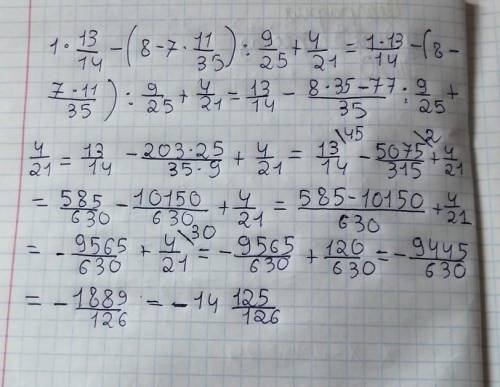 1·13/14-(8-7·11/35):9/25+4/21=1·13/14-(8-
7·11/35):9/25+4/21=13/14-8·35-77/35:9/25+
4/21=13/14-203·25/35·9+4/21=13/14\45-5075/315\2+4/21
=585/630-10150/630+4/21=585-10150/630+4/21
=-9565/630+4/21\30=-9565/630+120/630=-9445/630
=-1889/126=-14 125/126